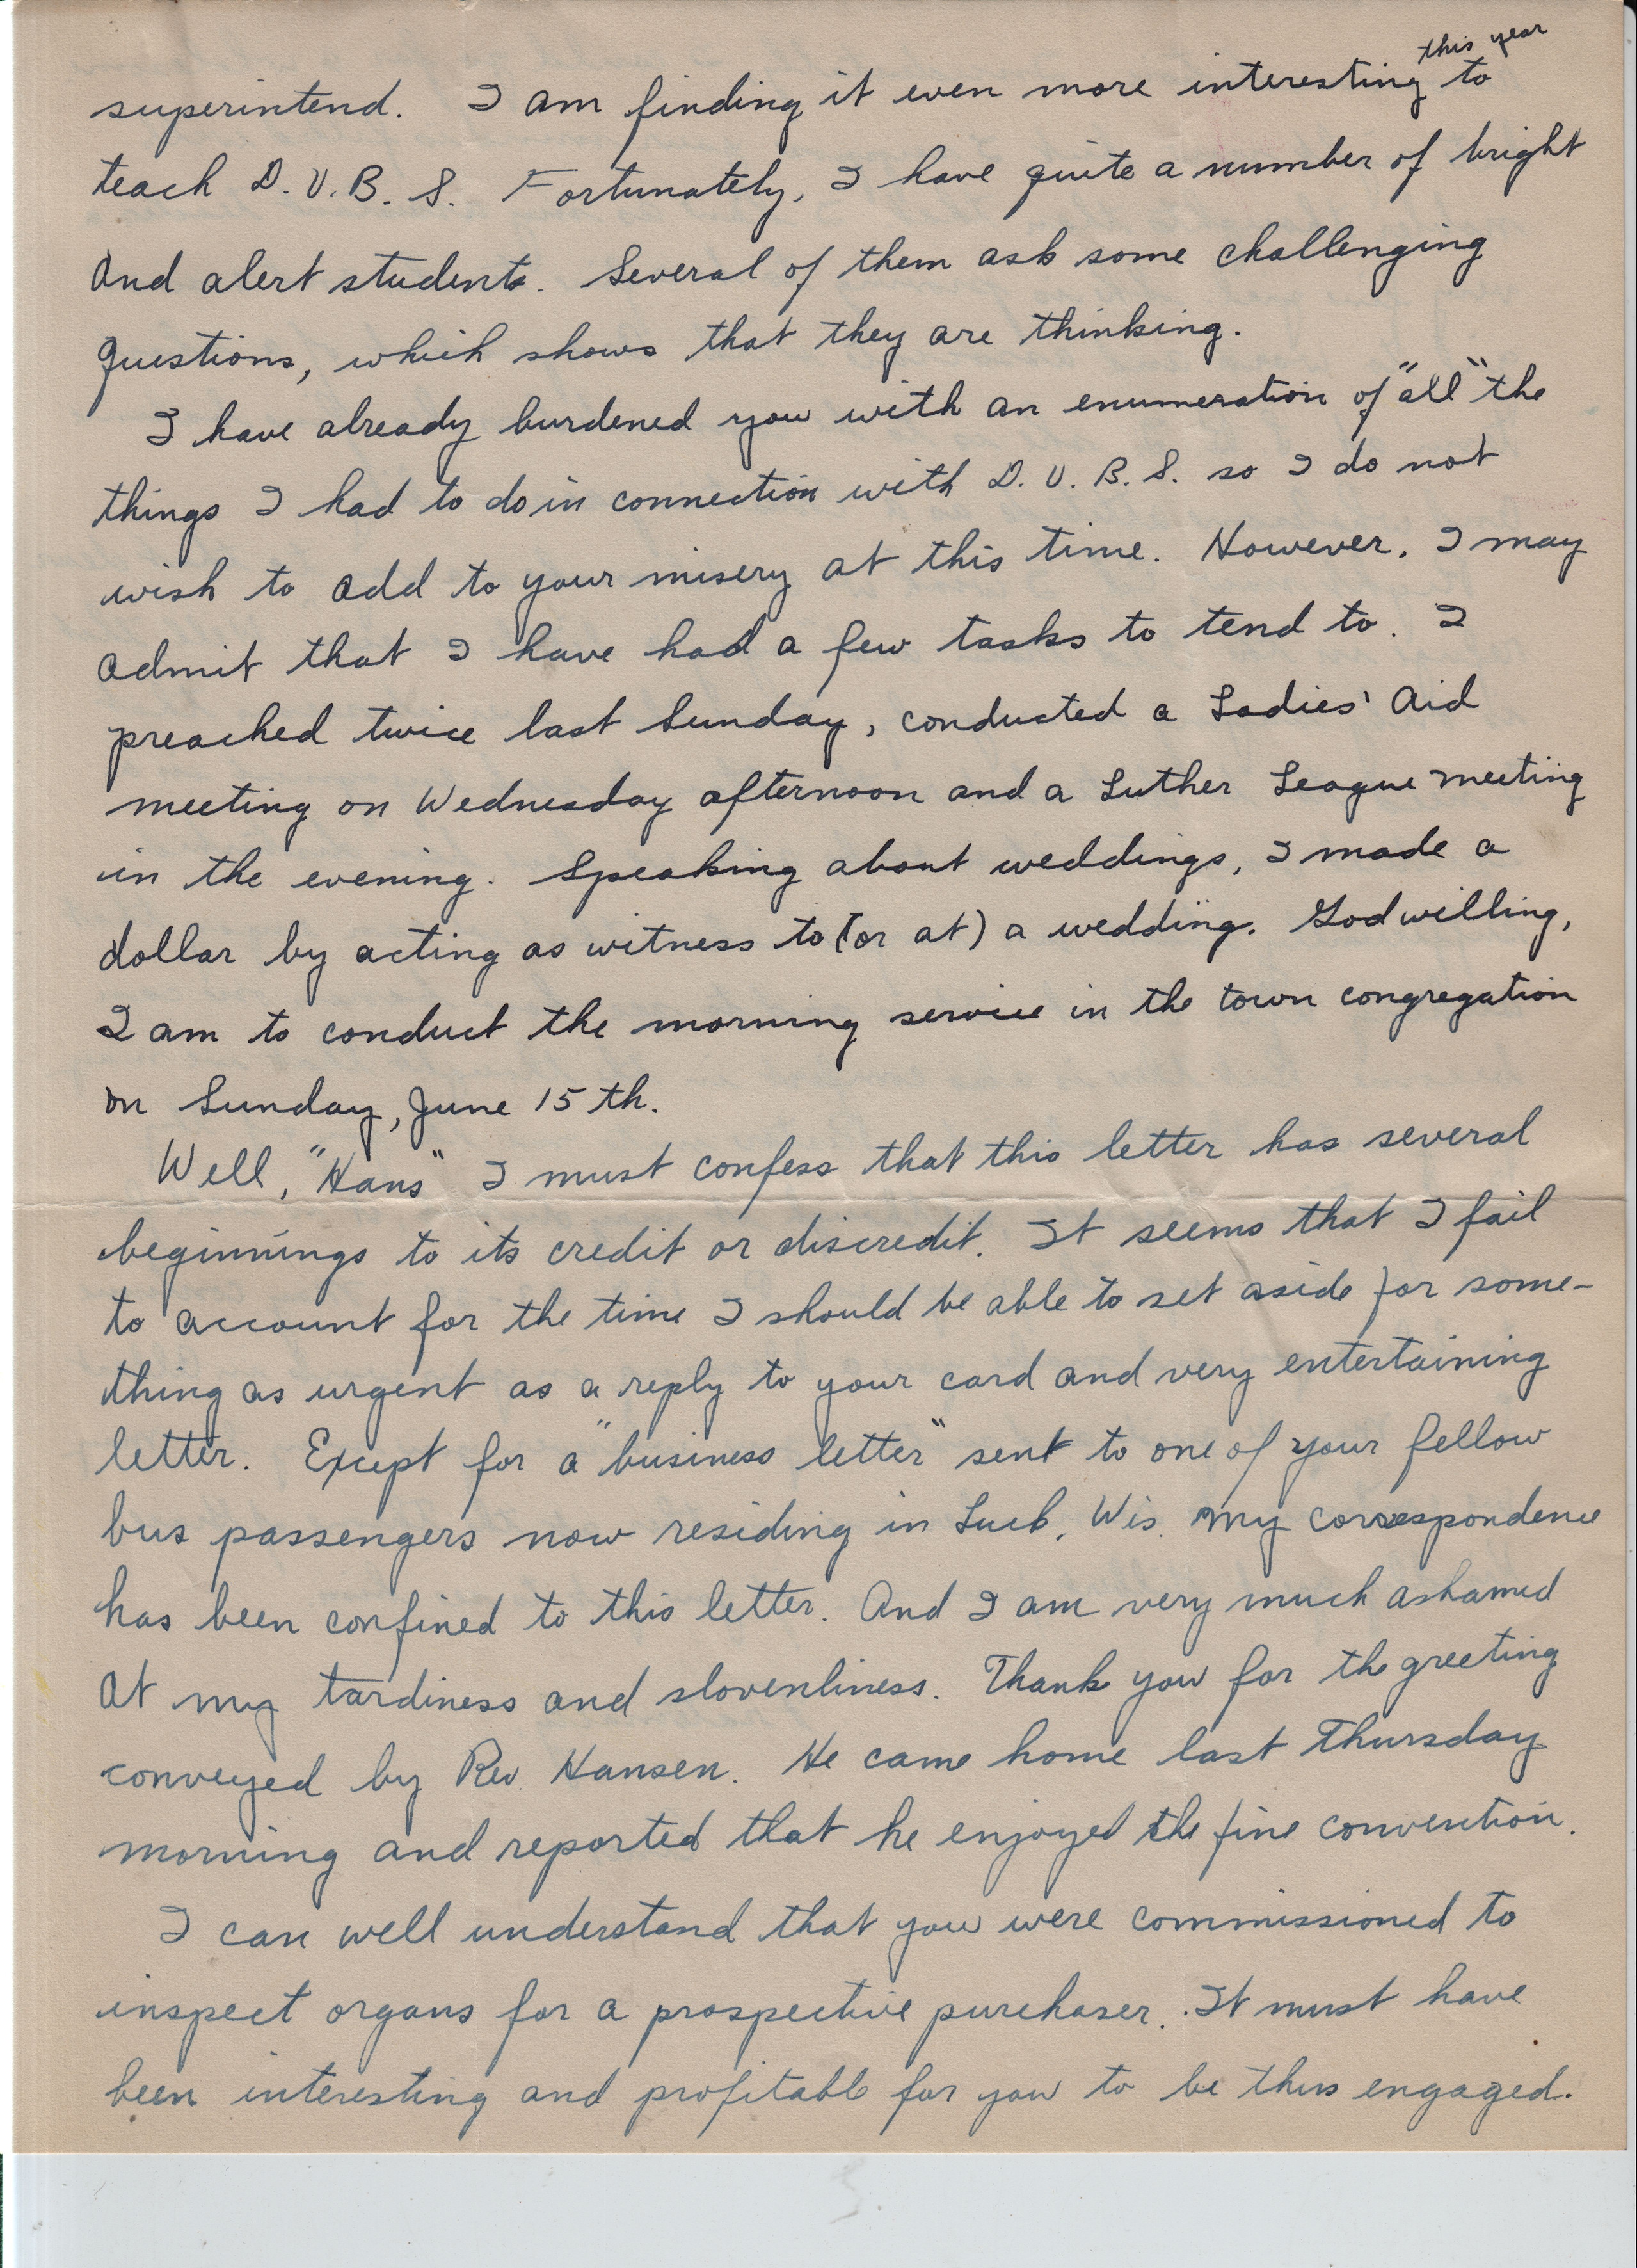 this year
superintend. I am finding it even more interesting to
teach D. V. B. S. Fortunately, I have quite a number of bright
and alert students. Several of them ask some challenging
questions, which shows that they are thinking.
I have already burdened you with an enumeration of "all" the
things I had to do in connection with D. V. B. S. so I do not
wish to add to your misery at this time. However, I may
admit that I have had a few tasks to tend to. I
preached twice last Sunday, conducted a Ladies' Aid
meeting on Wednesday afternoon and a Luther League meeting
in the evening. Speaking about weddings, I made a
dollar by acting as witness to (or at) a wedding. God willing,
I am to conduct the morning service in the town congregation
on Sunday, June 15th.
Well, "Hans" I must confess that this letter has several
beginnings to its credit or discredit. It seems that I fail
to account for the time I should be able to set aside for some-
thing as urgent as a reply to your card and very entertaining
letter. Except for a "business letter" sent to one of your fellow
bus passengers now residing in Luck, Wis. my correspondence
has been confined to this letter. And I am very much ashamed
at my tardiness and slovenliness. Thank you for the greeting
conveyed by Rev. Hansen. He came home last Thursday
morning and reported that he enjoyed the fine convention.
I can well understand that you were commissioned to
inspect organs for a prospective purchaser. It must have
been interesting and profitable for you to be thus engaged.